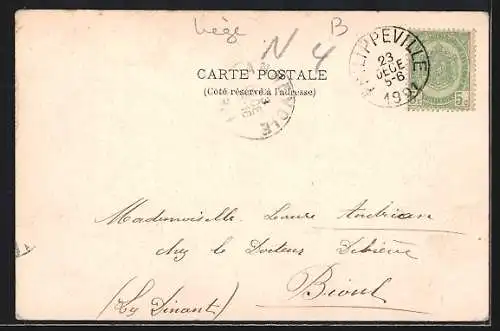 Liège
B
N
4
CARTE POSTALE
(Côté réservé à l'adresse)
PHILIPPEVILLE
23
DECE
5-6
1901
5c
Mademoiselle Laure Andrian
chez le Docteur
Bioul
(Lez Dinant)